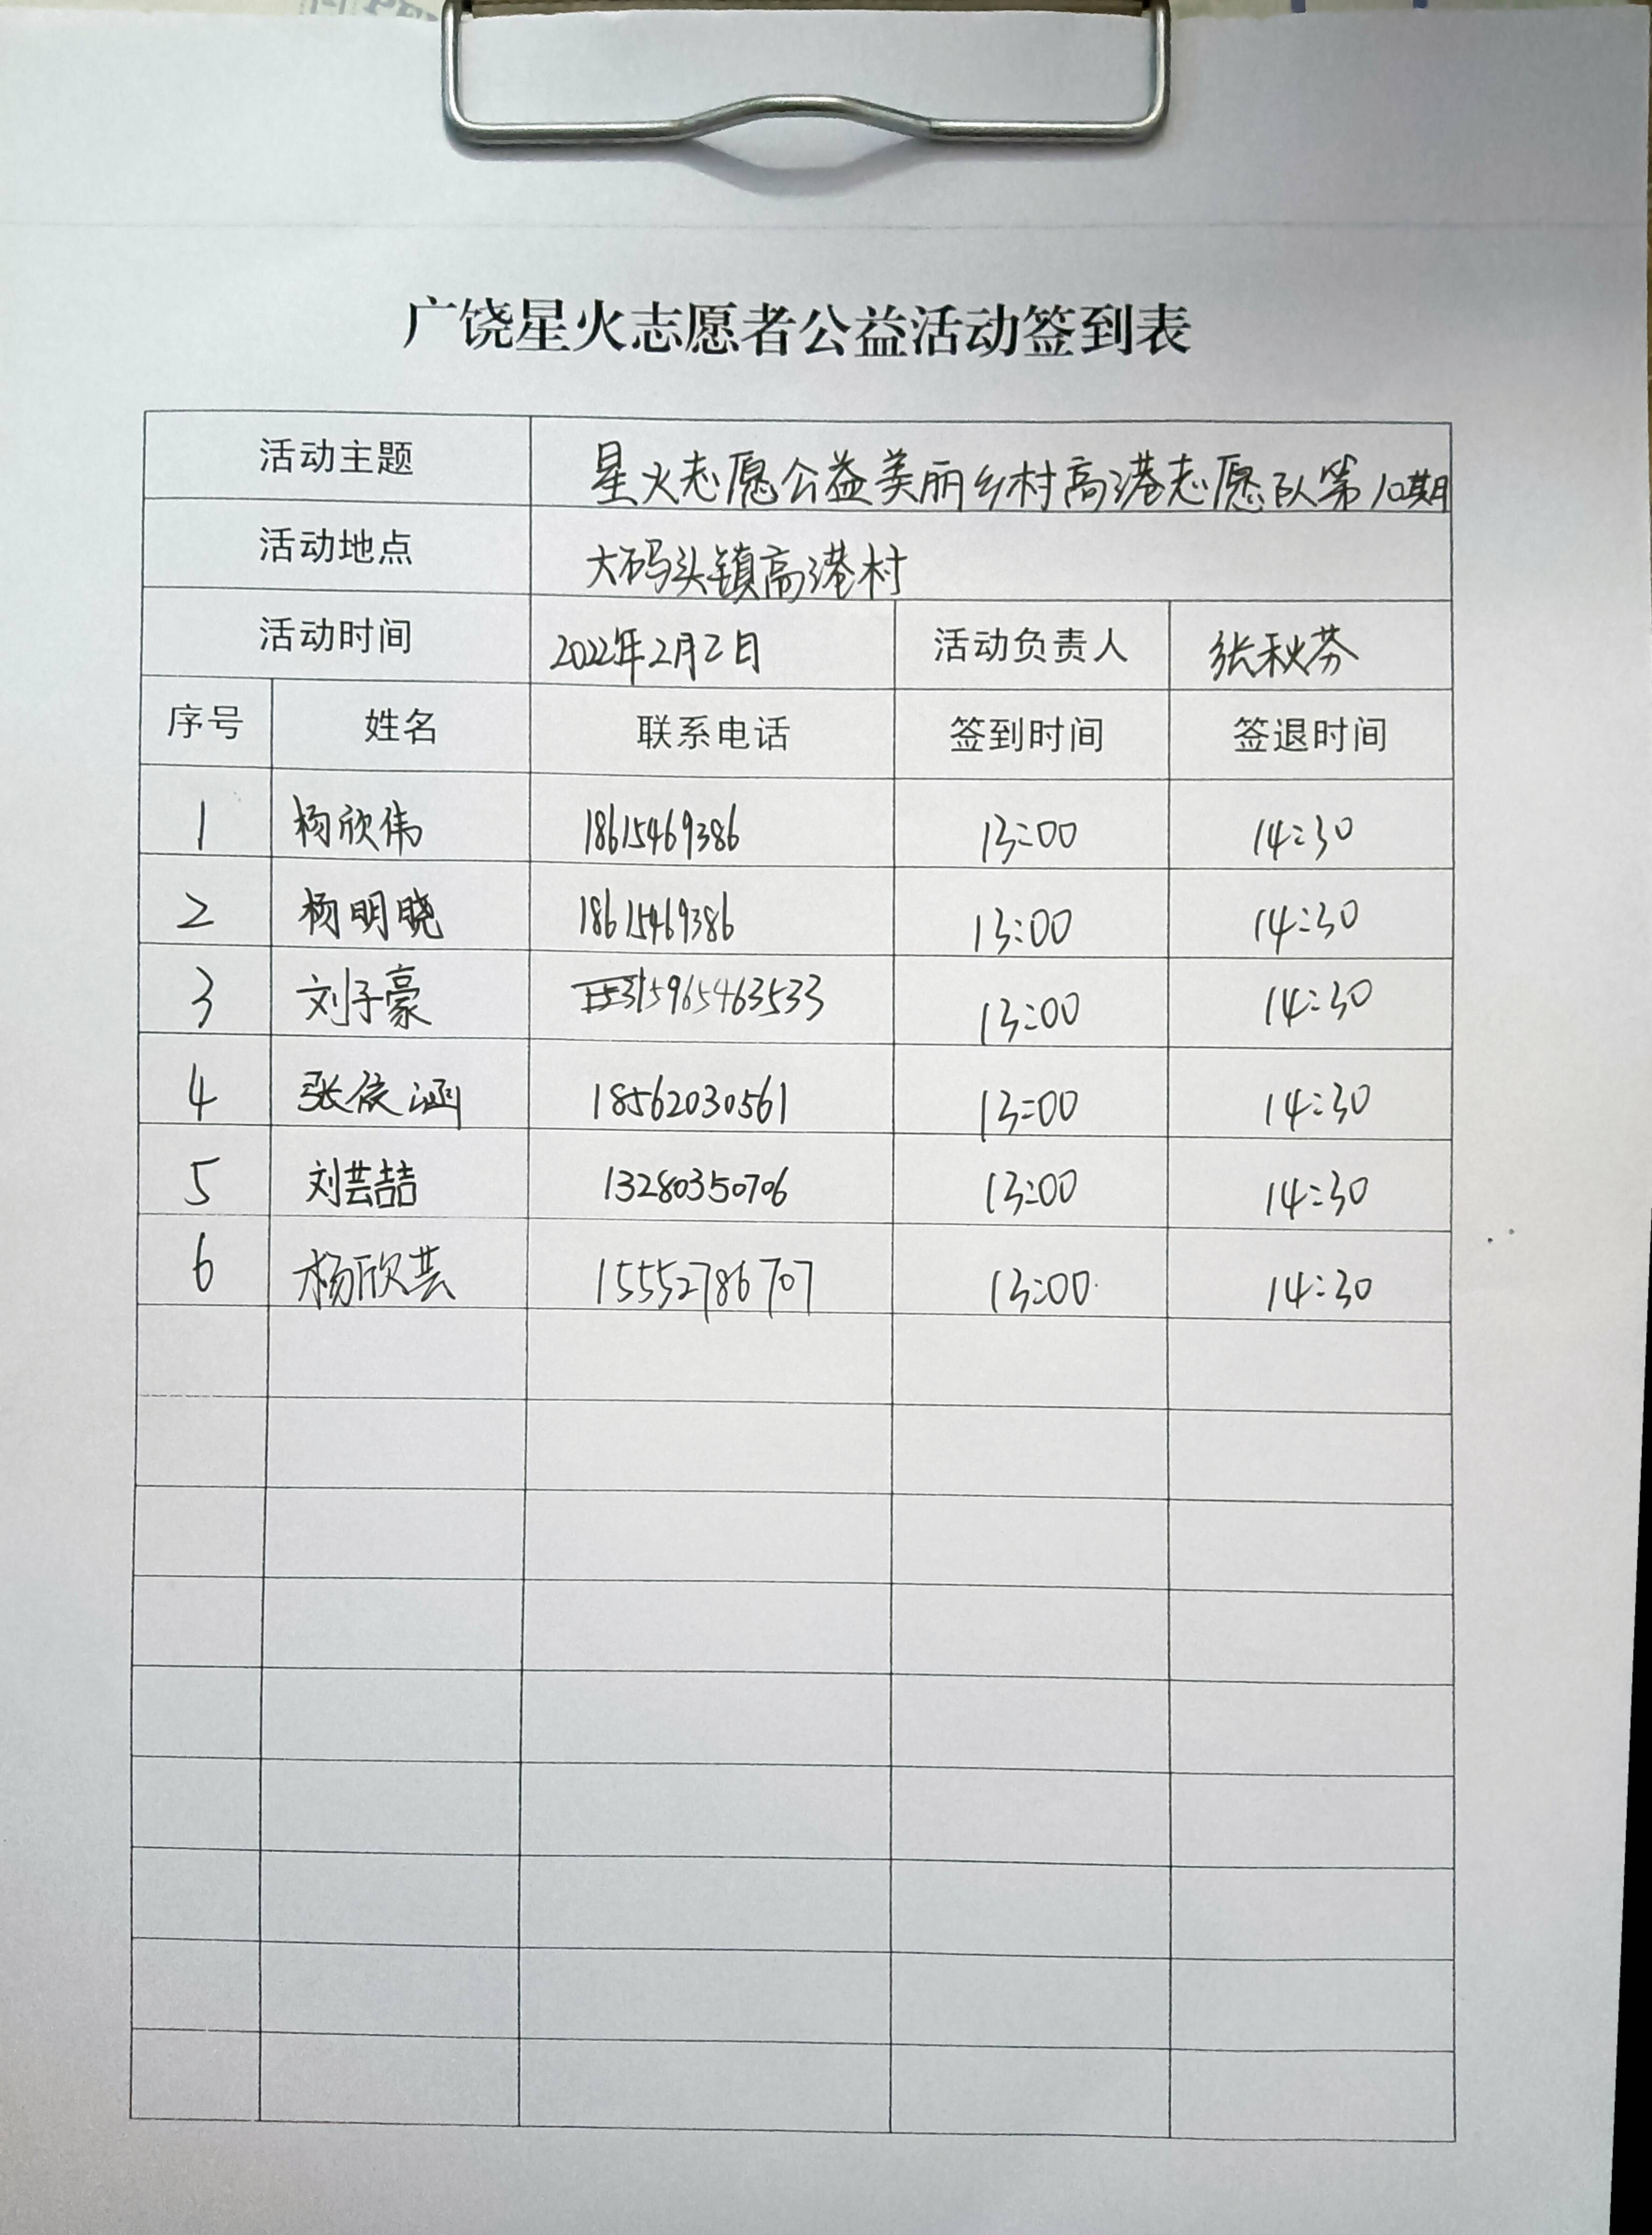 广饶星火志愿者公益活动签到表
活动主题 星火志愿公益美丽乡村高港志愿队第10期
活动地点 大码头镇高港村
活动时间 2022年2月2日 活动负责人 张秋芬
序号 姓名 联系电话 签到时间 签退时间
1 杨欣伟 18615469386 13:00 14:30
2 杨明晓 18615469386 13:00 14:30
3 刘子豪 15965463533 13:00 14:30
4 张依涵 18562030561 13:00 14:30
5 刘芸喆 13280350706 13:00 14:30
6 杨欣芸 15552786707 13:00 14:30